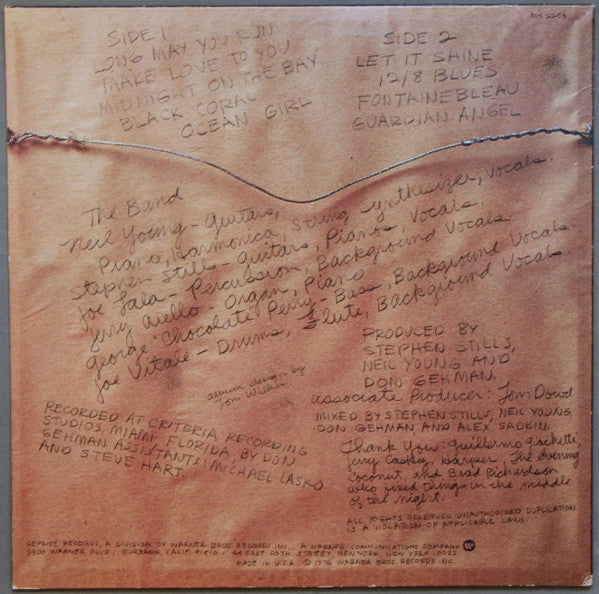 MS 2253
SIDE 1
LONG MAY YOU RUN
MAKE LOVE TO YOU
MIDNIGHT ON THE BAY
BLACK CORAL
OCEAN GIRL
SIDE 2
LET IT SHINE
12/8 BLUES
FONTAINEBLEAU
GUARDIAN ANGEL
The Band
Neil Young - Guitars,
Piano, Harmonica, String synthesizer, Vocals.
Stephen Stills - Guitars, Pianos, Vocals.
Joe Lala - Percussion, Background Vocals.
Jerry Aiello - Organ, Piano
George "Chocolate" Perry - Bass, Background Vocals.
Joe Vitale - Drums, Flute, Background Vocals.
album design by
Tom Wilkes
PRODUCED BY
STEPHEN STILLS,
NEIL YOUNG AND
DON GEHMAN.
Associate Producer: Tom Dowd
MIXED BY STEPHEN STILLS, NEIL YOUNG,
DON GEHMAN AND ALEX SADKIN.
RECORDED AT CRITERIA RECORDING
STUDIOS, MIAMI, FLORIDA, BY DON
GEHMAN. ASSISTANTS: MICHAEL LASKO
AND STEVE HART
Thank You: Guillermo Giachetti
Jerry Caskey, Harper, The evening
Coconut, and Brad Richardson
who fixed things in the middle
of the night.
ALL RIGHTS RESERVED. UNAUTHORIZED DUPLICATION
IS A VIOLATION OF APPLICABLE LAWS.
REPRISE RECORDS, A DIVISION OF WARNER BROS. RECORDS INC., A WARNER COMMUNICATIONS COMPANY
3300 WARNER BLVD., BURBANK, CALIF. 91510 • 44 EAST 50TH STREET, NEW YORK, NEW YORK 10022
MADE IN U.S.A. © 1976 WARNER BROS. RECORDS INC.